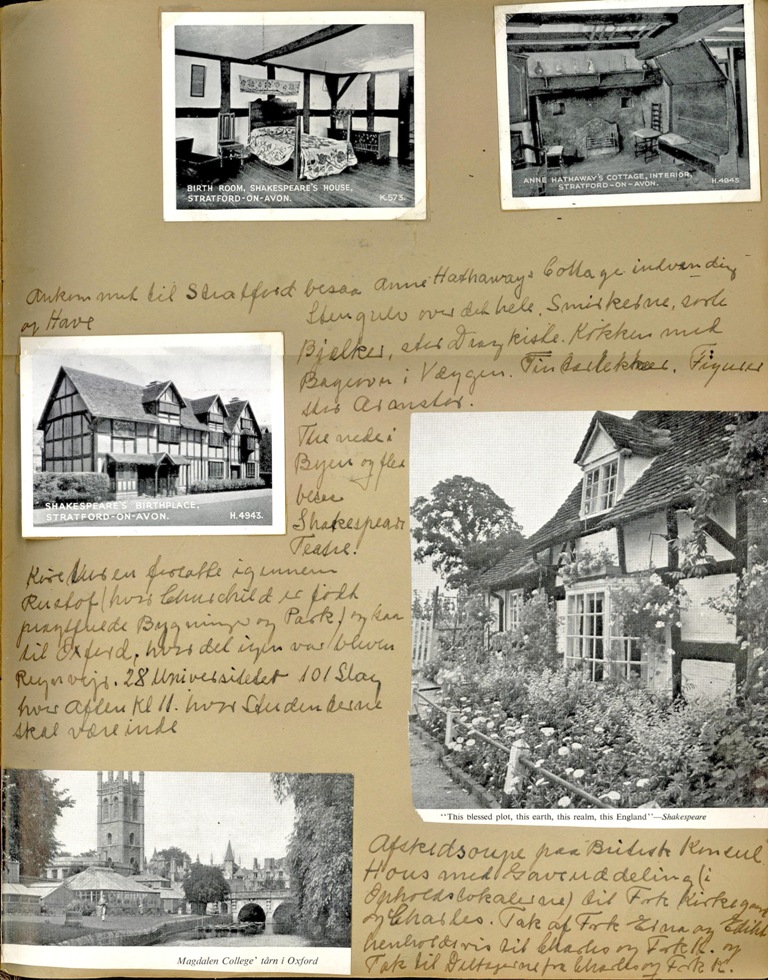 BIRTH ROOM, SHAKESPEARE'S HOUSE,
STRATFORD-ON-AVON. K.573.
ANNE HATHAWAY'S COTTAGE, INTERIOR, H.4945
STRATFORD-ON-AVON.
Ankommet til Stratford besaa Anne Hathaways Cottage indvendig
og Have
Stengulv over det hele,
Bjælker, stor Dragkiste. Køkken med
Bageovn i Væggen. Figurer
stor
The nede i
Byen og
besaa
Shakespeare
Teatre.
SHAKESPEARE'S BIRTHPLACE,
STRATFORD-ON-AVON. H.4943.
igennem
(hvor Churchild er født
Bygninger og Park) og kom
til Oxford, hvor det igen var bleven
Regnvejr. 28 Universitetet 101 Slag
hver Aften Kl 11. hvor Studenterne
skal være inde
"This blessed plot, this earth, this realm, this England"—Shakespeare
Magdalen College' tårn i Oxford
Afskedssoupe paa British Konsul
Hous med Gaveuddeling (i
Opholdslokalerne) til Frk Kirkegaard
og Charles. Tak af Frk Edna og Edith
henholdsvis til Charles og Frk K. og
Tak til Deltagerne fra Charles og Frk K.